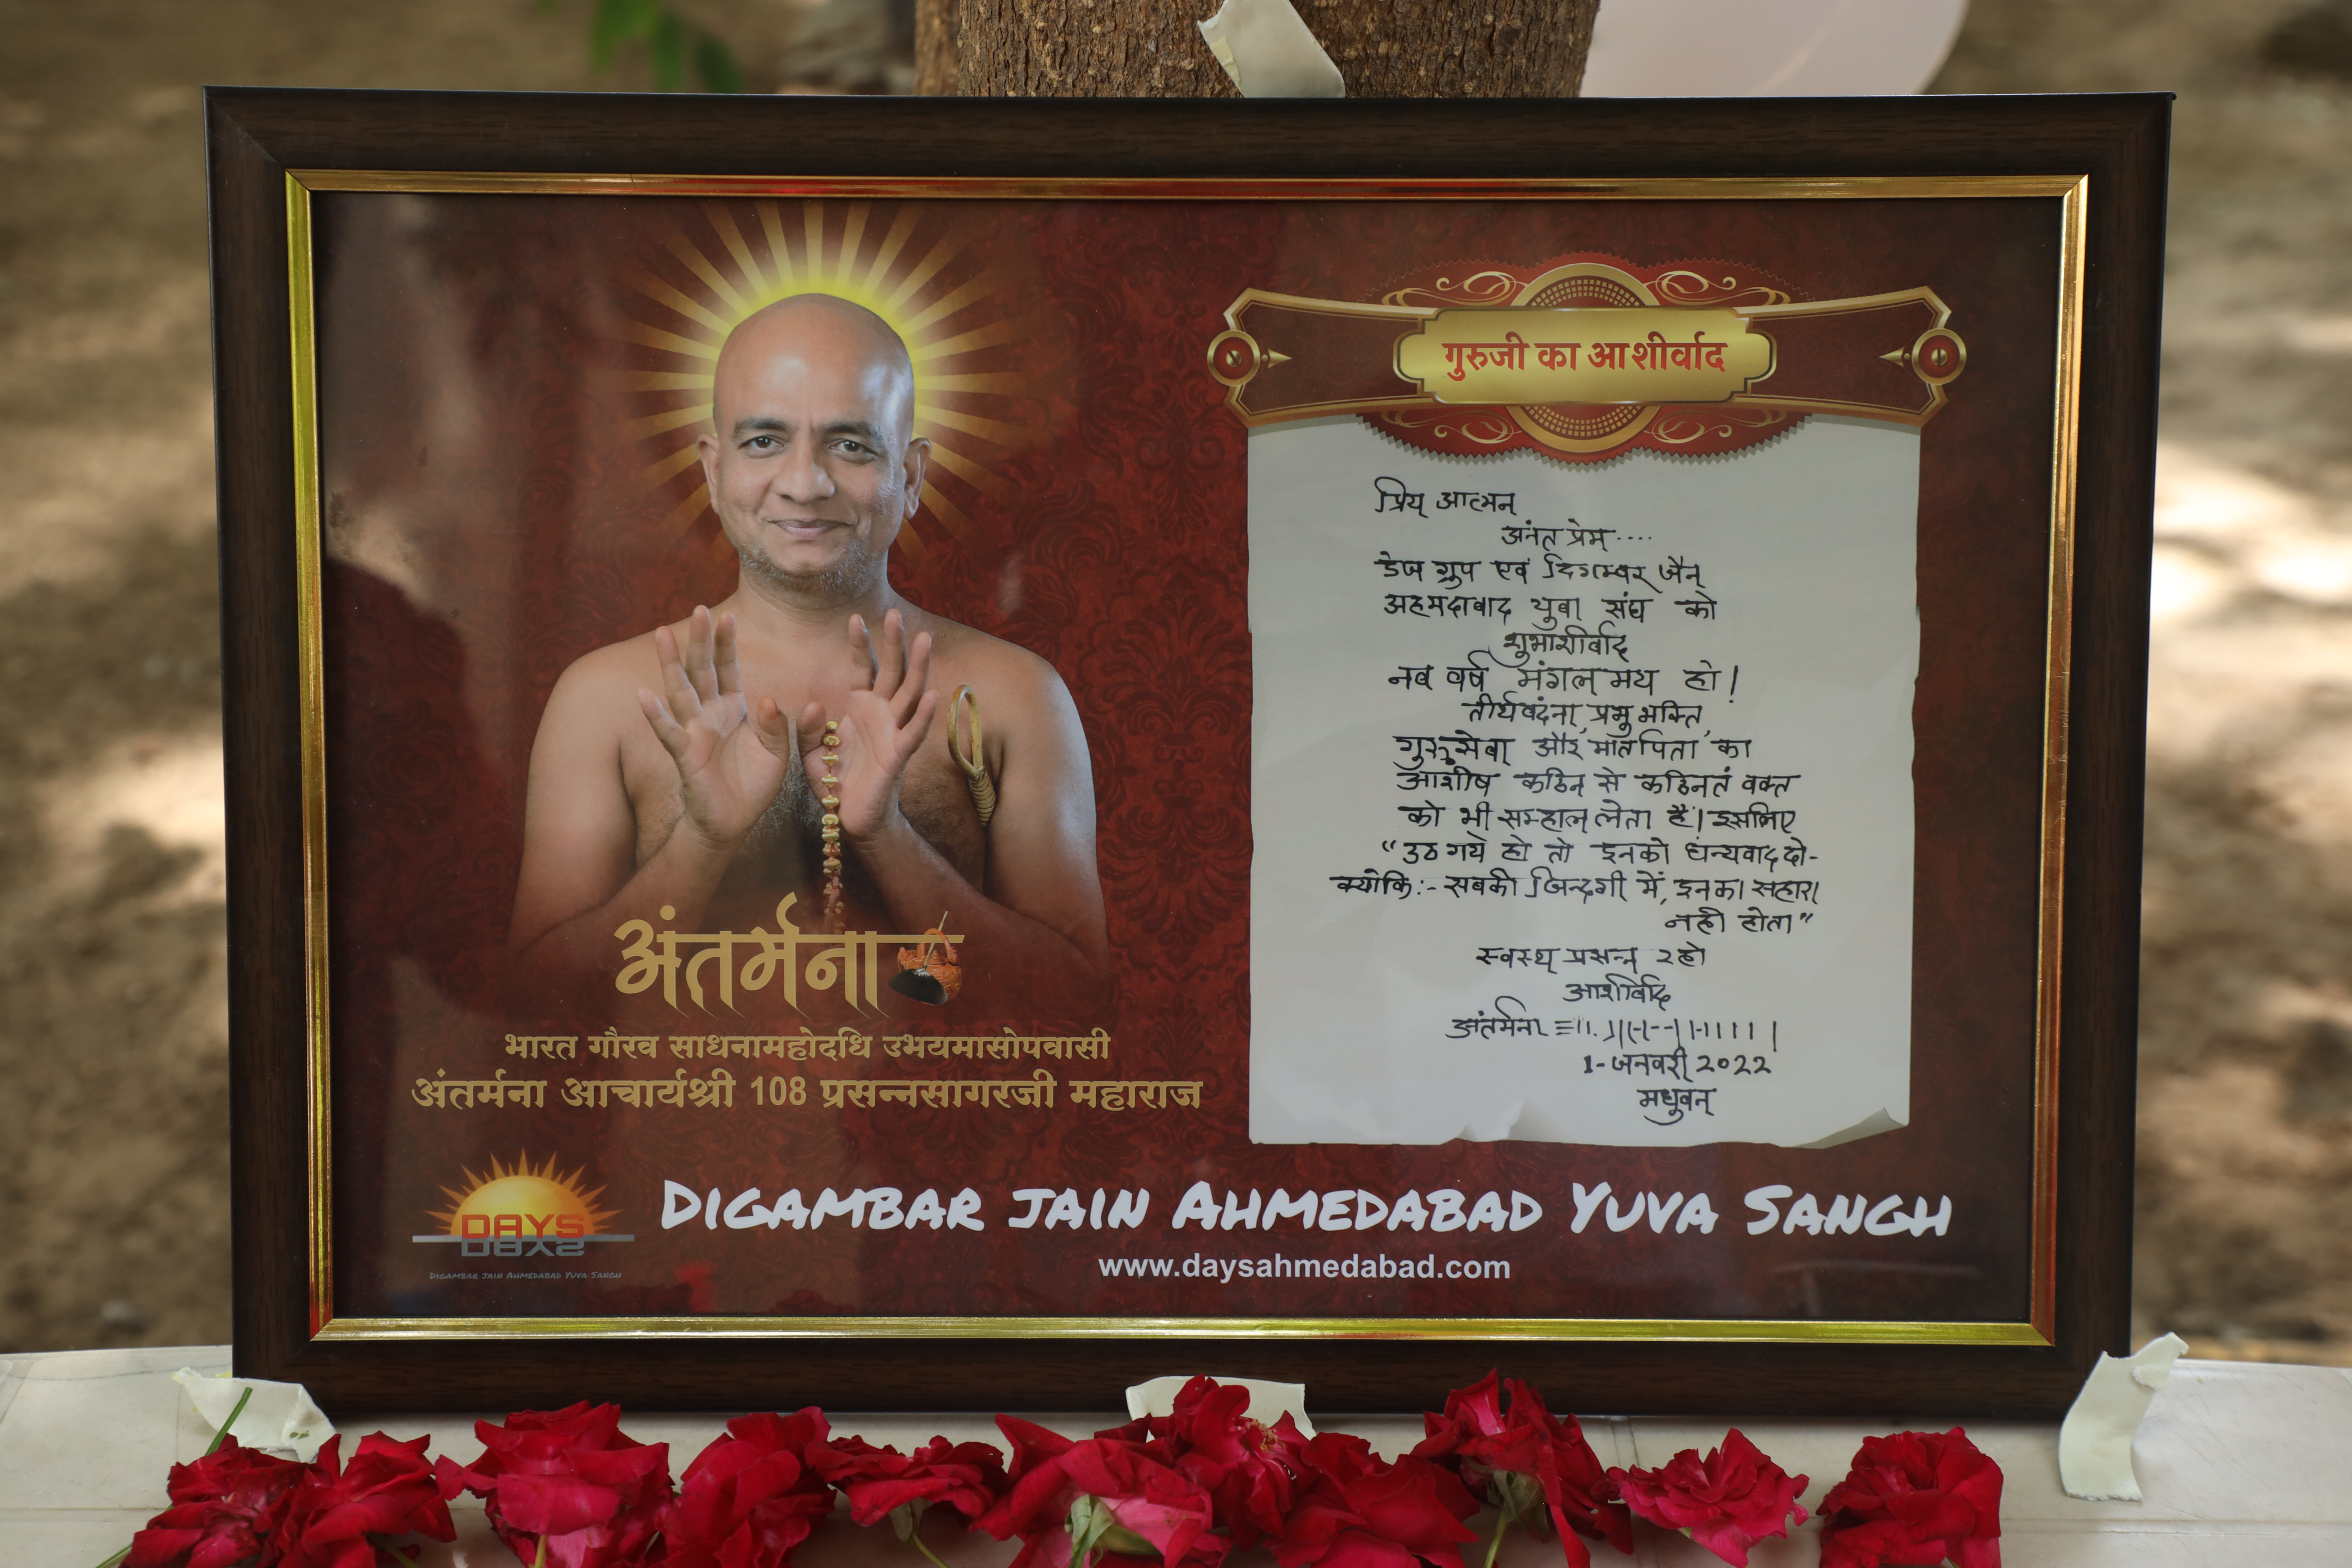 गुरुजी का आशीर्वाद
प्रिय आत्मन्
अनंत प्रेम....
डेज ग्रुप एवं दिगम्बर जैन
अहमदाबाद युवा संघ को
शुभाशीर्वाद
नव वर्ष मंगल मय हो!
तीर्थवंदना, प्रभु भक्ति,
गुरु सेवा और, मात पिता का
आशीष कठिन से कठिनतं वक्त
को भी सम्हाल लेता है। इसलिए
"उठ गये हो तो इनको धन्यवाद दो-
क्योकि:- सबकी जिन्दगी में, इनका सहारा
नही होता"
स्वस्थ प्रसन्न रहो
आशीर्वाद
अंतर्मना
1-जनवरी 2022
मधुवन
अंतर्मना
भारत गौरव साधनामहोदधि उभयमासोपवासी
अंतर्मना आचार्यश्री 108 प्रसन्नसागरजी महाराज
DAYS
DIGAMBAR JAIN AHMEDABAD YUVA SANGH
DIGAMBAR JAIN AHMEDABAD YUVA SANGH
www.daysahmedabad.com